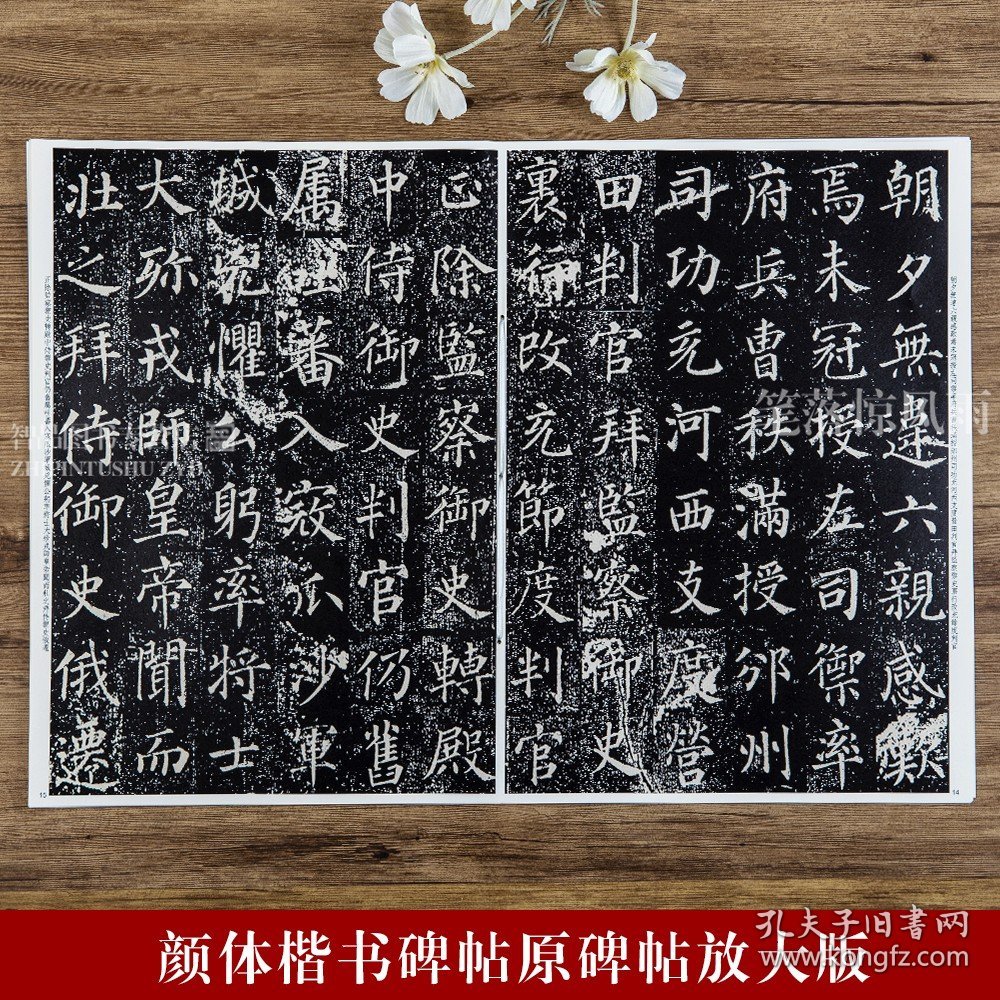 朝夕無違六親感歎
焉未冠授左司禦率
府兵曹秩滿授邠州
司功充河西支度營
田判官拜監察御史
裏行改充節度判官
14
正除監察御史轉殿
中侍御史判官仍舊
属吐蕃入寇瓜沙軍
城兇懼公躬率将士
大殄戎師皇帝聞而
壮之拜侍御史俄遷
15
笔落惊风雨
智品图书
ZHIPINTUSHU
颜体楷书碑帖原碑帖放大版
孔夫子旧书网
www.kongfz.com